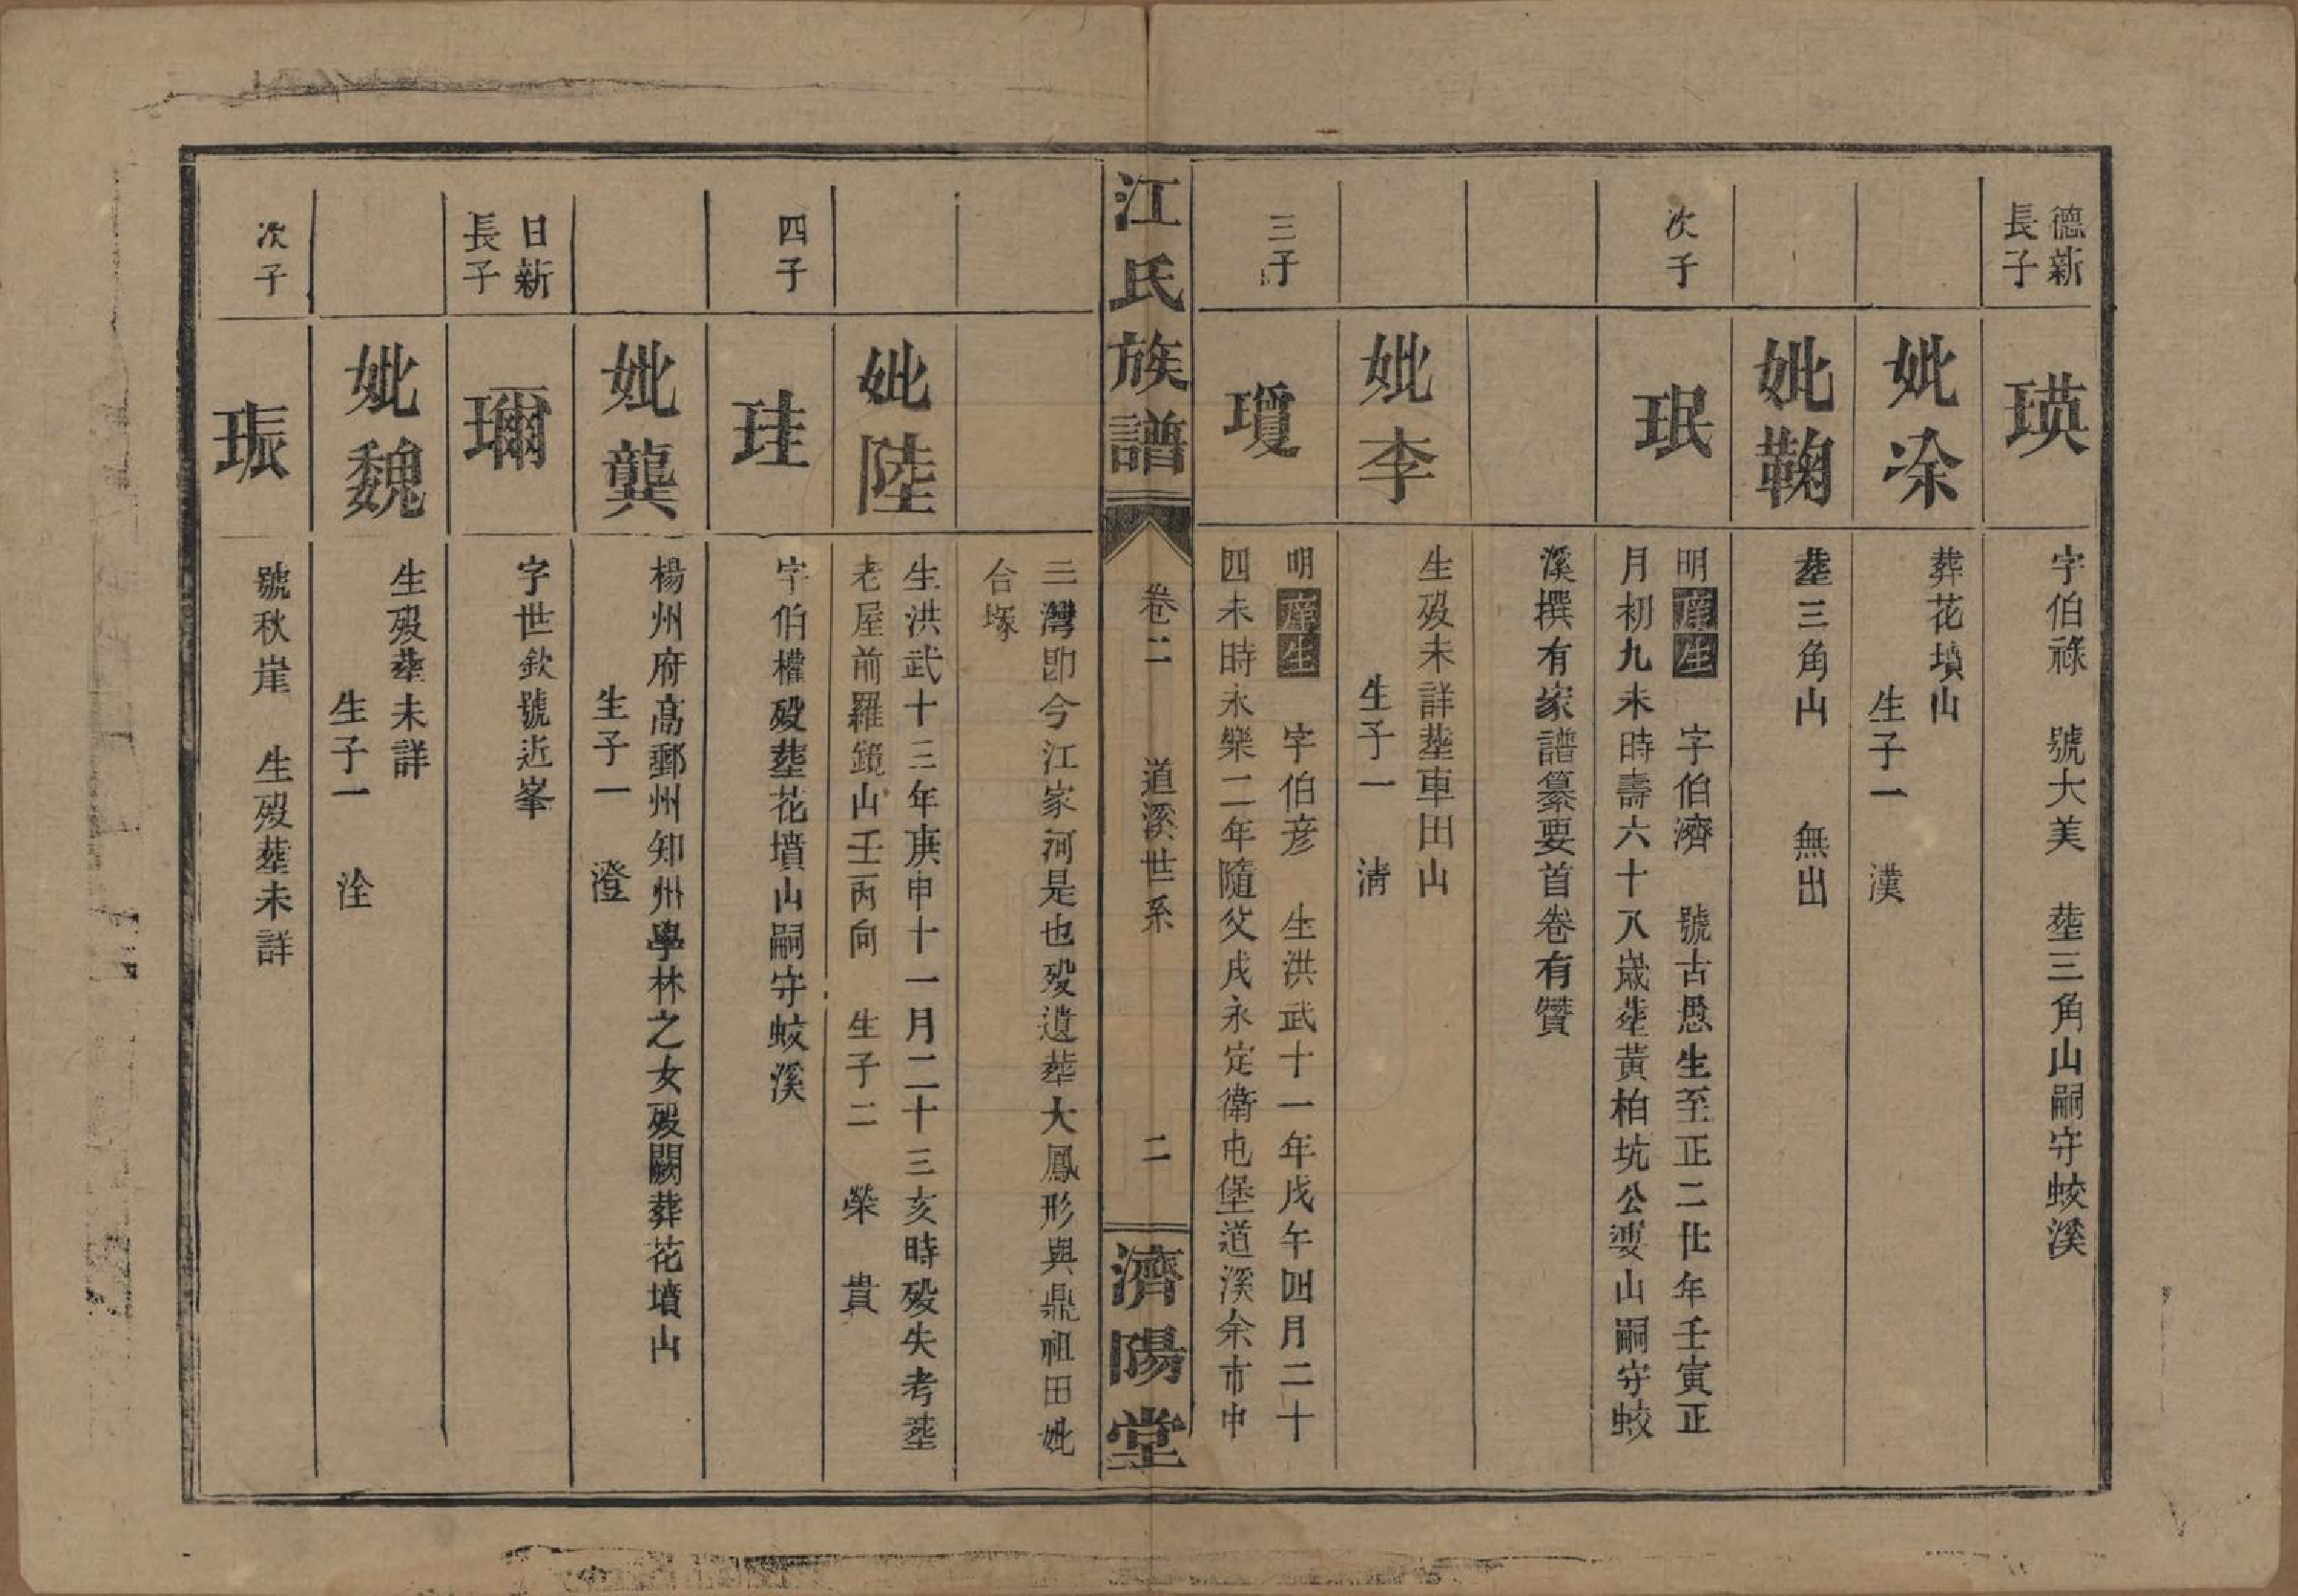 德新
長子
瑛
字伯祿　號大美　塟三角山嗣守蛟溪
妣凃
葬花墳山
生子一　漢
妣鞠
塟三角山　無出
次子
珉
明庠生　字伯濟　號古愚生至正二十二年壬寅正
月初九未時壽六十八歲塟黃柏坑公婆山嗣守蛟
溪撰有家譜纂要首卷有贊
妣李
生殁未詳塟車田山
生子一　淸
三子
瓊
明庠生　字伯彦　生洪武十一年戊午四月二十
四未時永樂二年隨父戍永定衛屯堡道溪余市中
江氏族譜
卷二　道溪世系　二
濟陽堂
三灣卽今江家河是也殁遺塟大鳳形與鼎祖田妣
合塚
妣陸
生洪武十三年庚申十一月二十三亥時殁失考塟
老屋前羅鏡山壬丙向　生子二　榮　貴
四子
珪
字伯權殁塟花墳山嗣守蛟溪
妣龔
楊州府高郵州知州學林之女殁闕葬花墳山
生子一　澄
日新
長子
璽
字世欽號近峯
妣魏
生殁塟未詳
生子一　洤
次子
珎
號秋崖　生殁塟未詳